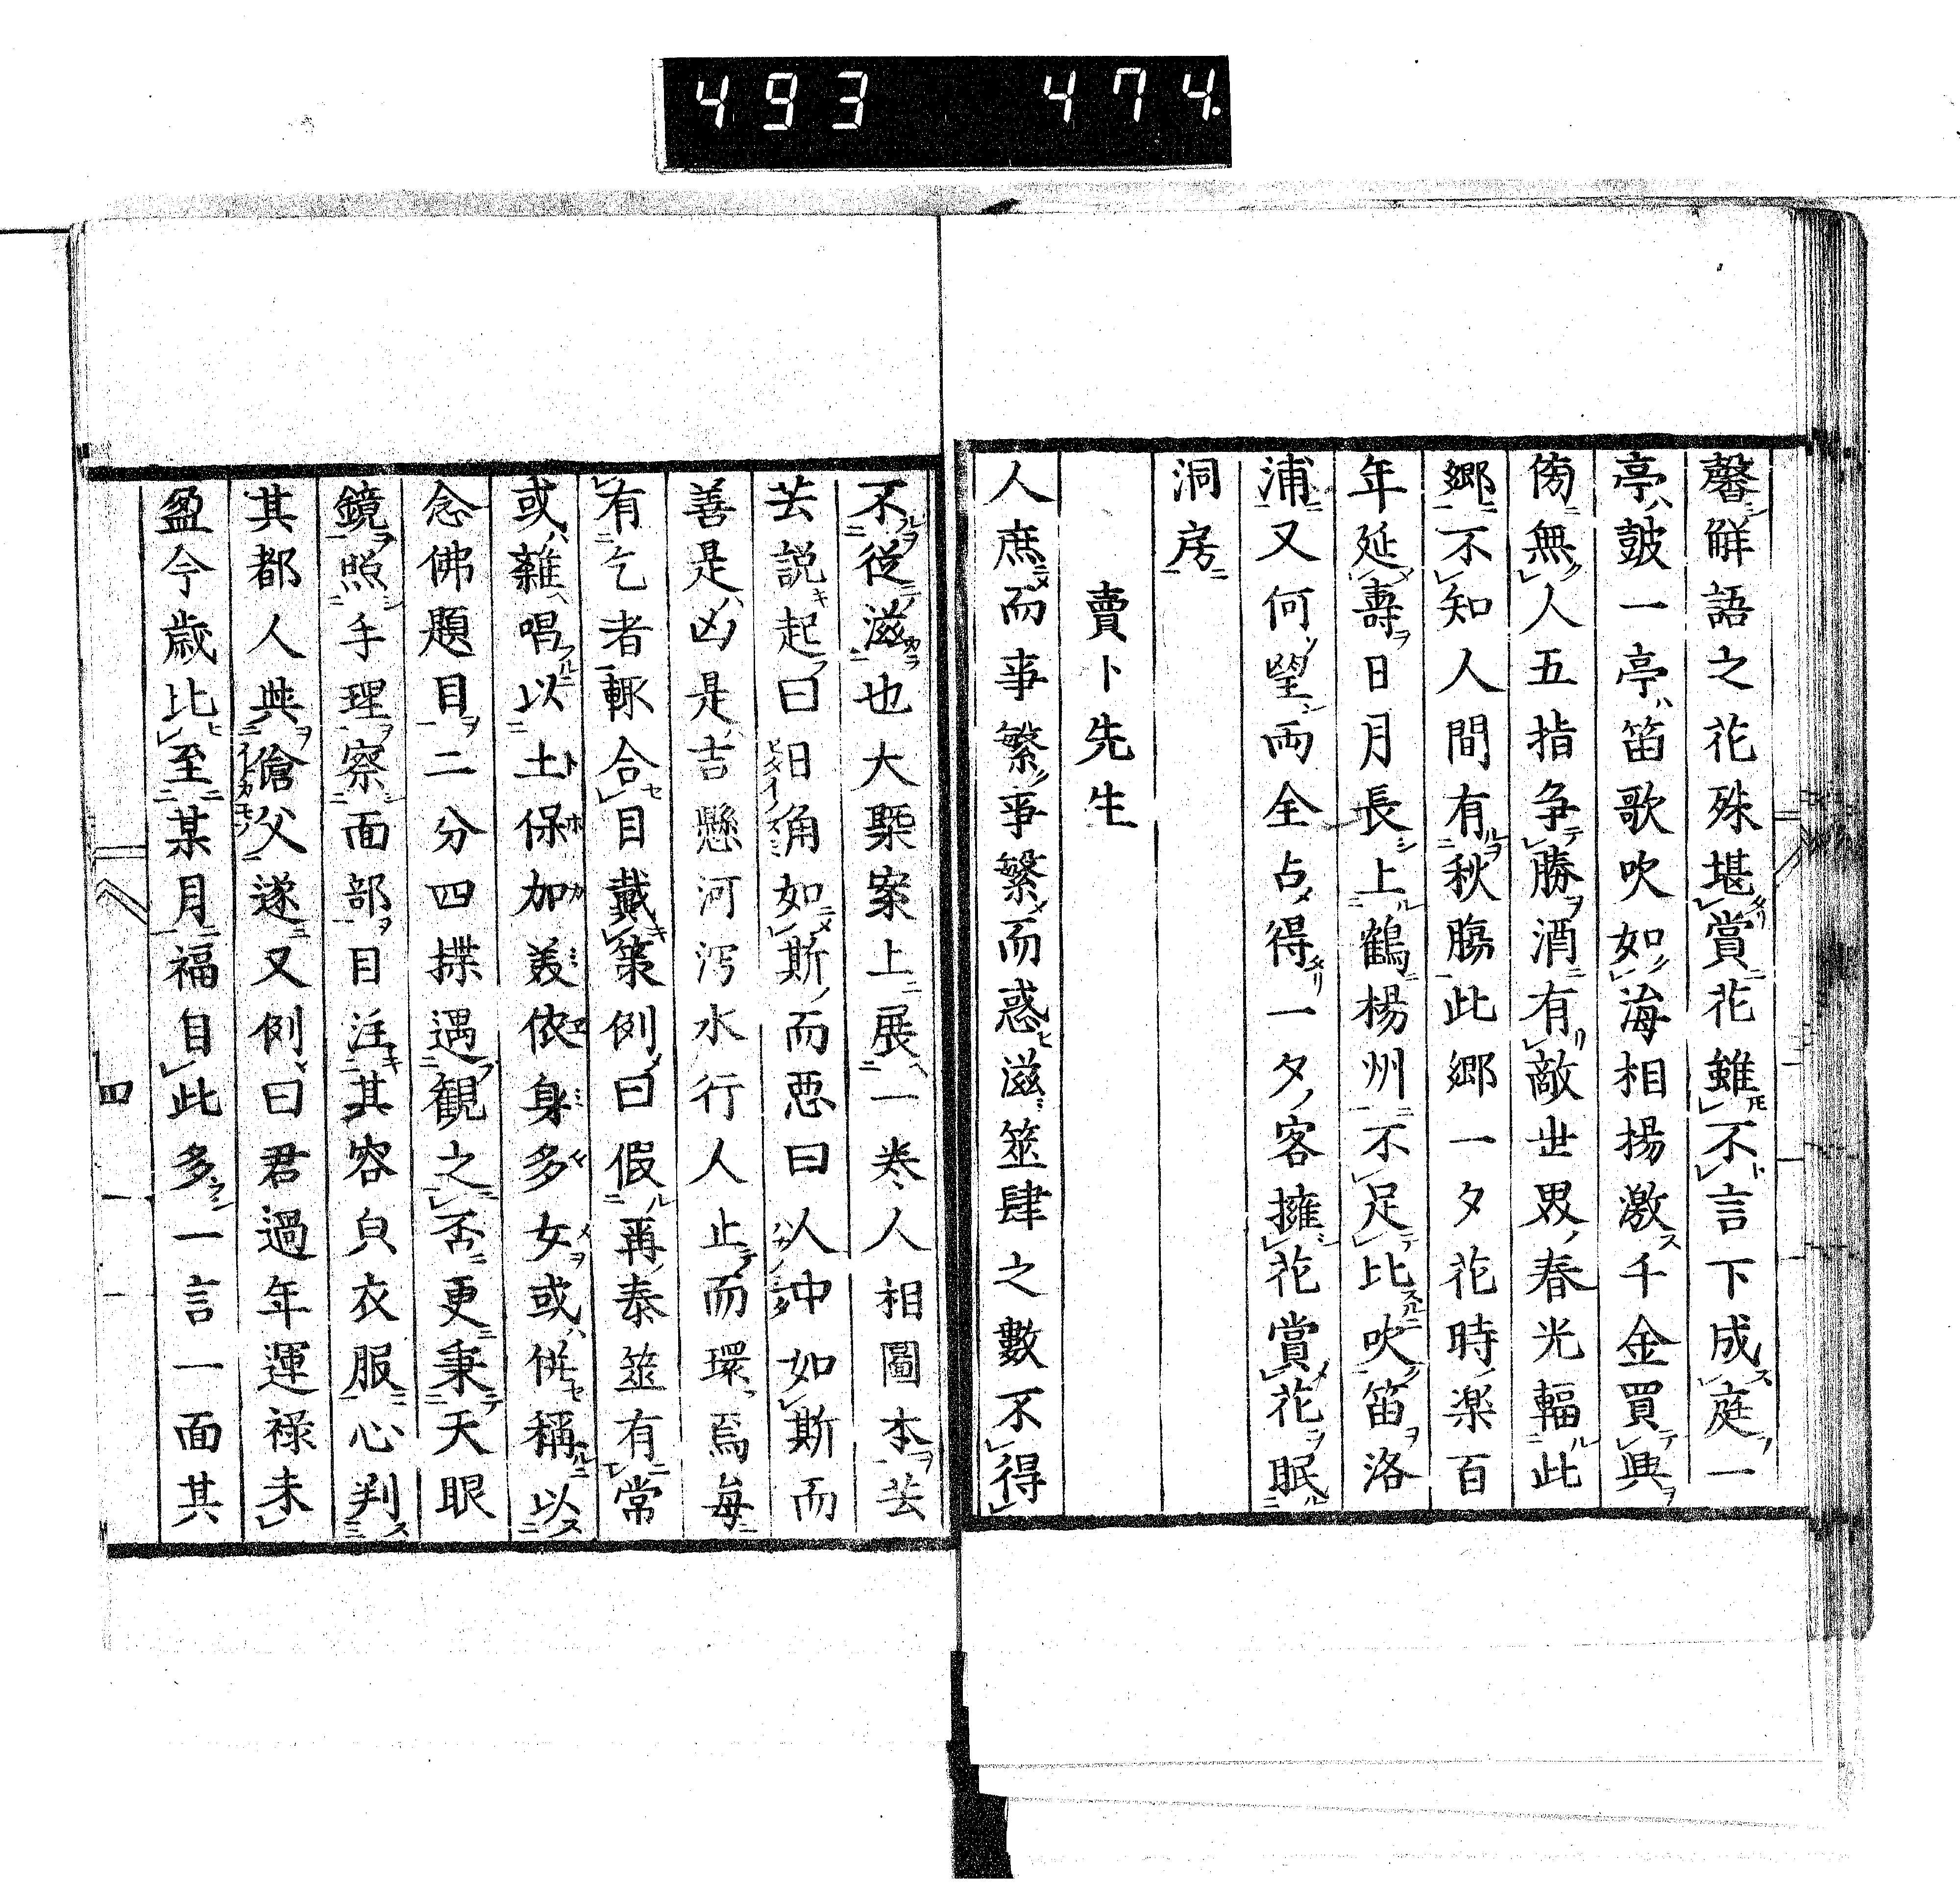 493 474
馨解語之花殊堪賞花雖不言下成庭一
亭皷一亭笛歌吹如海相揚激千金買興
傍無人五指争勝酒有敵世界春光輻此
郷不知人間有秋腸此郷一夕花時楽百
年延壽日月長上鶴楊州不足比吹笛洛
浦又何望両全占得一夕客擁花賞花眠
洞房
賣卜先生
人庶而事繁事繁而惑滋筮肆之數不得
不從滋也大槩案上展一巻人相圖本芸
芸説起曰日角如斯而惡曰人中如斯而
善是凶是吉懸河瀉水行人止而環焉毎
有乞者輙合目戴策例曰假再泰筮有常
或雜唱以土保加美依身多女或併稱以
念佛題目二分四揲遇觀之否更秉天眼
鏡照手理察面部目注其容皃衣服心判
其都人與傖父遂又例曰君過年運禄未
盈今歳比至某月福自此多一言一面其
四